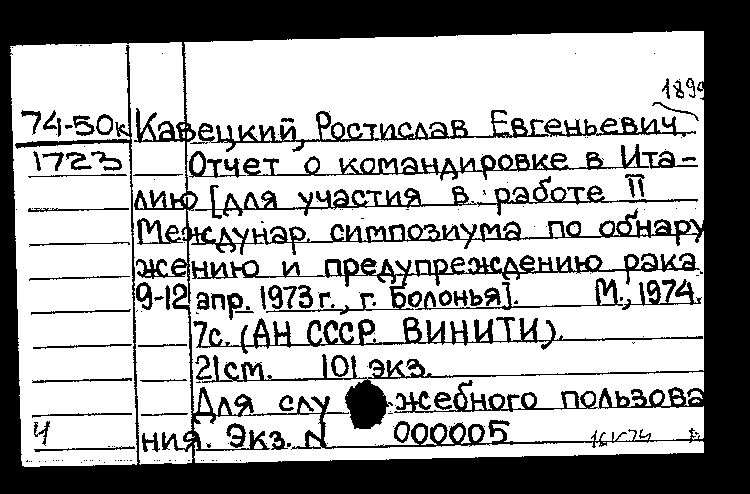 1899
74-50к Кавецкий, Ростислав Евгеньевич.
1723 Отчет о командировке в Ита-
лию [для участия в работе II
Междунар. симпозиума по обнару
жению и предупреждению рака
9-12 апр. 1973 г., г. Болонья]. М., 1974.
7с. (АН СССР. ВИНИТИ).
21 см. 101 экз.
Для служебного пользова
ния. Экз. N 000005
Ч 16 V 74